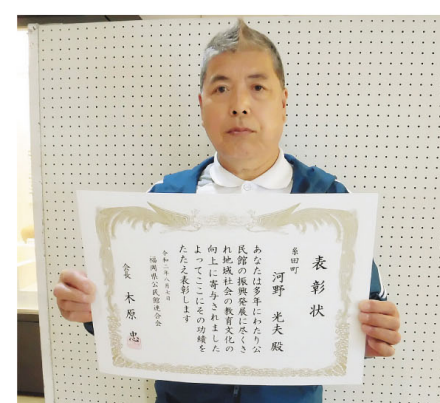 表彰状
糸田町
河野 光夫 殿
あなたは多年にわたり公
民館の振興発展に尽くさ
れ地域社会の教育文化の
向上に寄与されました
よってここにその功績を
たたえ表彰します
福岡県公民館連合会
会長 木原 忠